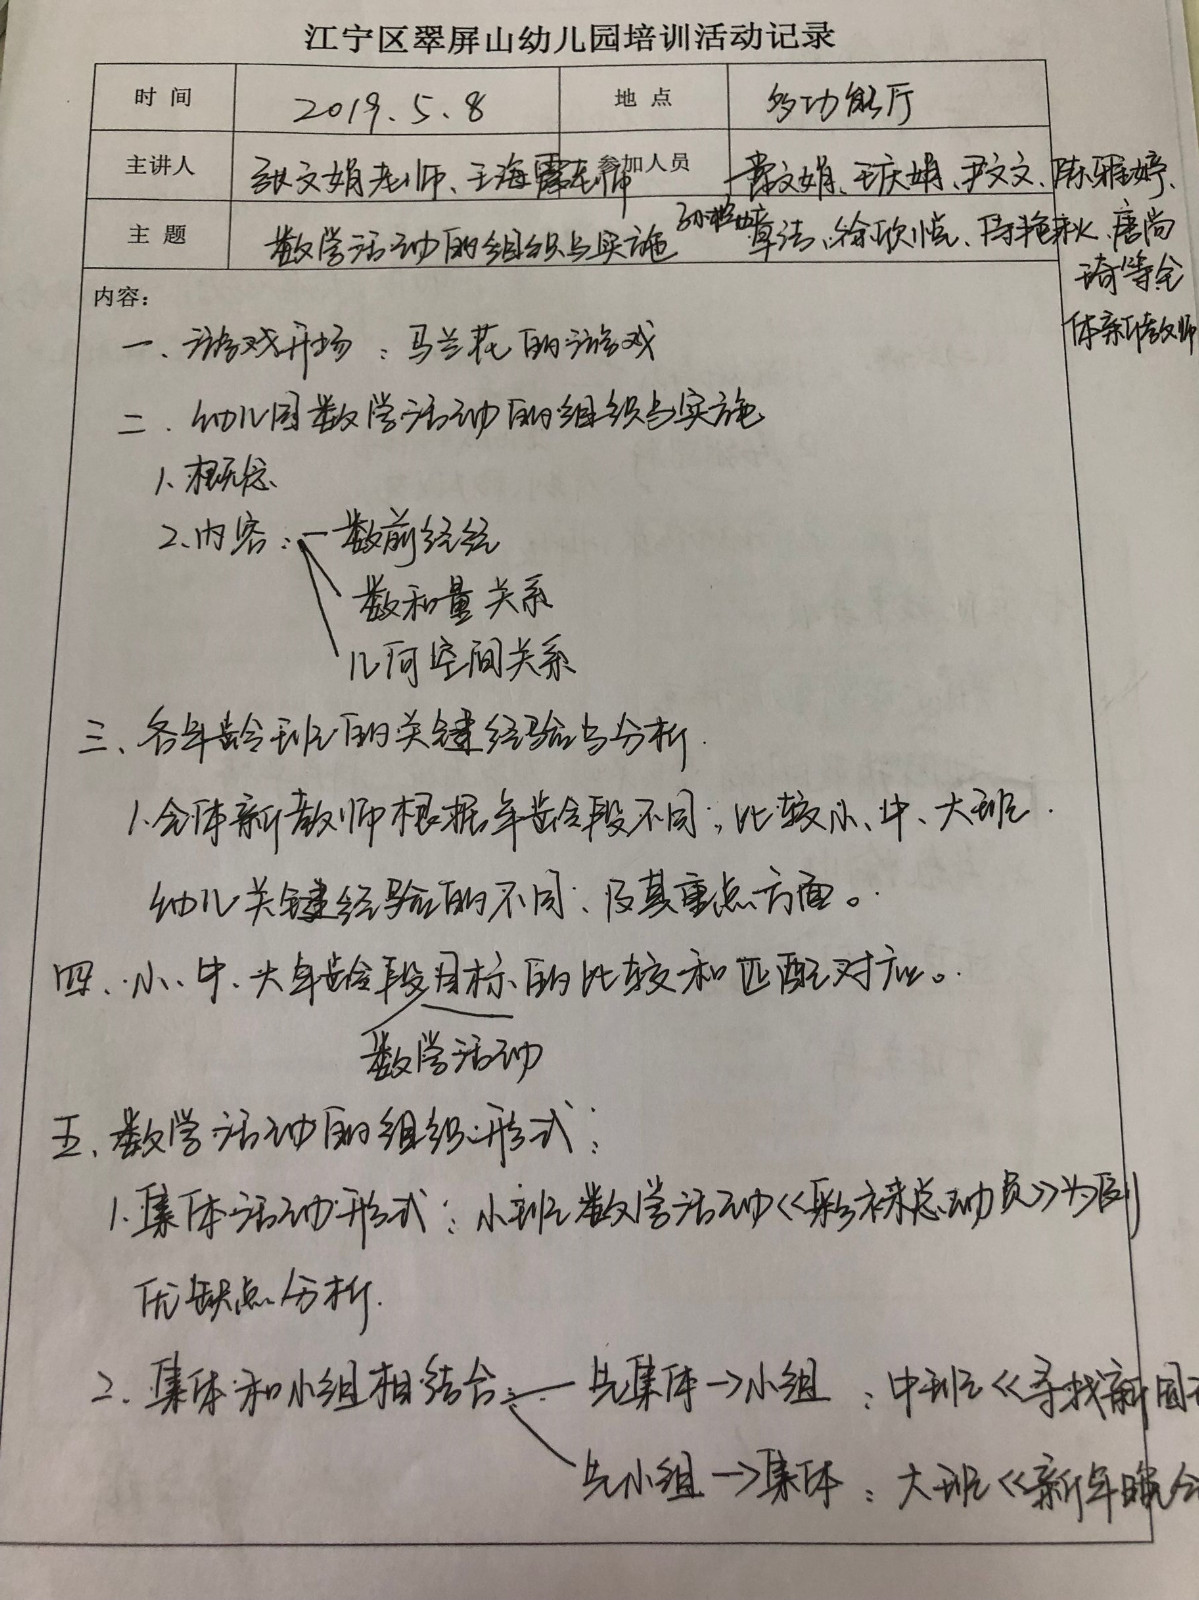 江宁区翠屏山幼儿园培训活动记录
时 间 2019.5.8 地 点 多功能厅
主讲人 张文娟老师、王海霞老师 参加人员 文娟、王庆娟、尹文文、陈雅婷、
主 题 数学活动的组织与实施 章洁、徐欣悦、陈艳秋、唐尚
琦等全
体新教师
内容：
一、游戏开场：马兰花的游戏
二、幼儿园数学活动的组织与实施
1、概念
2、内容：数前经验
数和量关系
几何空间关系
三、各年龄班的关键经验与分析.
1、全体新教师根据年龄段不同，比较小、中、大班
幼儿关键经验的不同，及其重点方面。
四、小、中、大年龄段目标的比较和匹配对应。
数学活动
五、数学活动的组织形式：
1、集体活动形式：小班数学活动《彩袜总动员》为例
优缺点分析.
2、集体和小组相结合：先集体→小组：中班《寻找新园
先小组→集体：大班《新年晚会